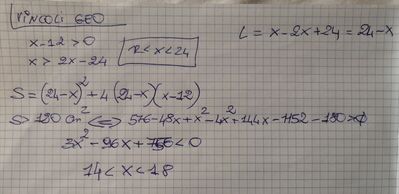 VINCOLI GEO
x-12>0
x>2x-24
12<x<24
L = x-2x+24=24-x
S=(24-x)²+4(24-x)(x-12)
S>120 cm² <=> 576-48x+x²-4x²+144x-1152-180>0
3x²-96x+756<0
14<x<18